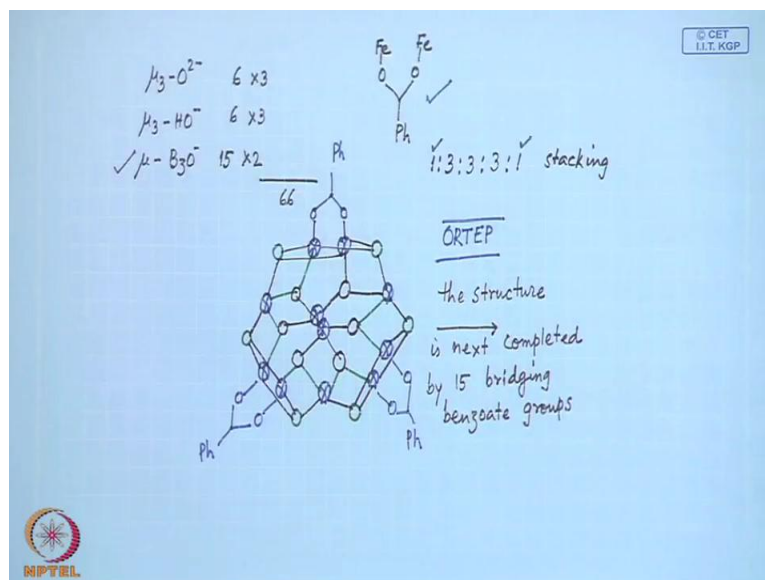 © CET
I.I.T. KGP
μ₃-O²⁻ 6 ×3
μ₃-HO⁻ 6 ×3
✓ μ-B3O⁻ 15 ×2
66
Fe Fe
O O
Ph
✓
1:3:3:3:1 stacking
ORTEP
the structure
is next completed
by 15 bridging
benzoate groups
Ph
Ph
Ph
NPTEL